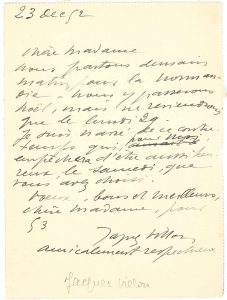 23 Dec 52
Chère Madame
nous partons demain
matin pour la Norman-
die. nous y passerons
Noël, mais ne reviendrons
que le lundi 29.
Je suis navré de ce contre-
temps qui, pour nous
empêchera d'être aussi heu-
reux le samedi, que
vous avez choisi.
Vœux, bons et meilleurs,
chère Madame, pour
53
Jacques Villon
amicalement respectueux
Jacques Villon